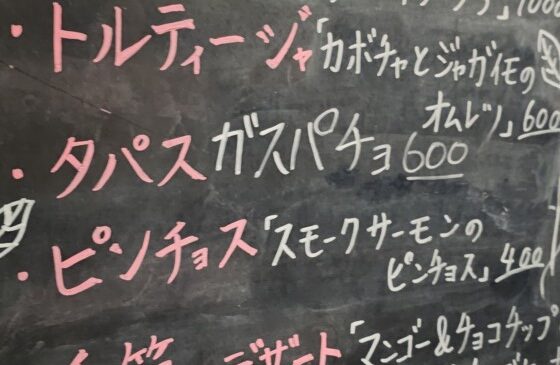 ・トルティージャ「カボチャとジャガイモの
オムレツ」600
・タパス ガスパチョ 600
・ピンチョス「スモークサーモンの
ピンチョス」400
デザート「マンゴー&チョコチップ